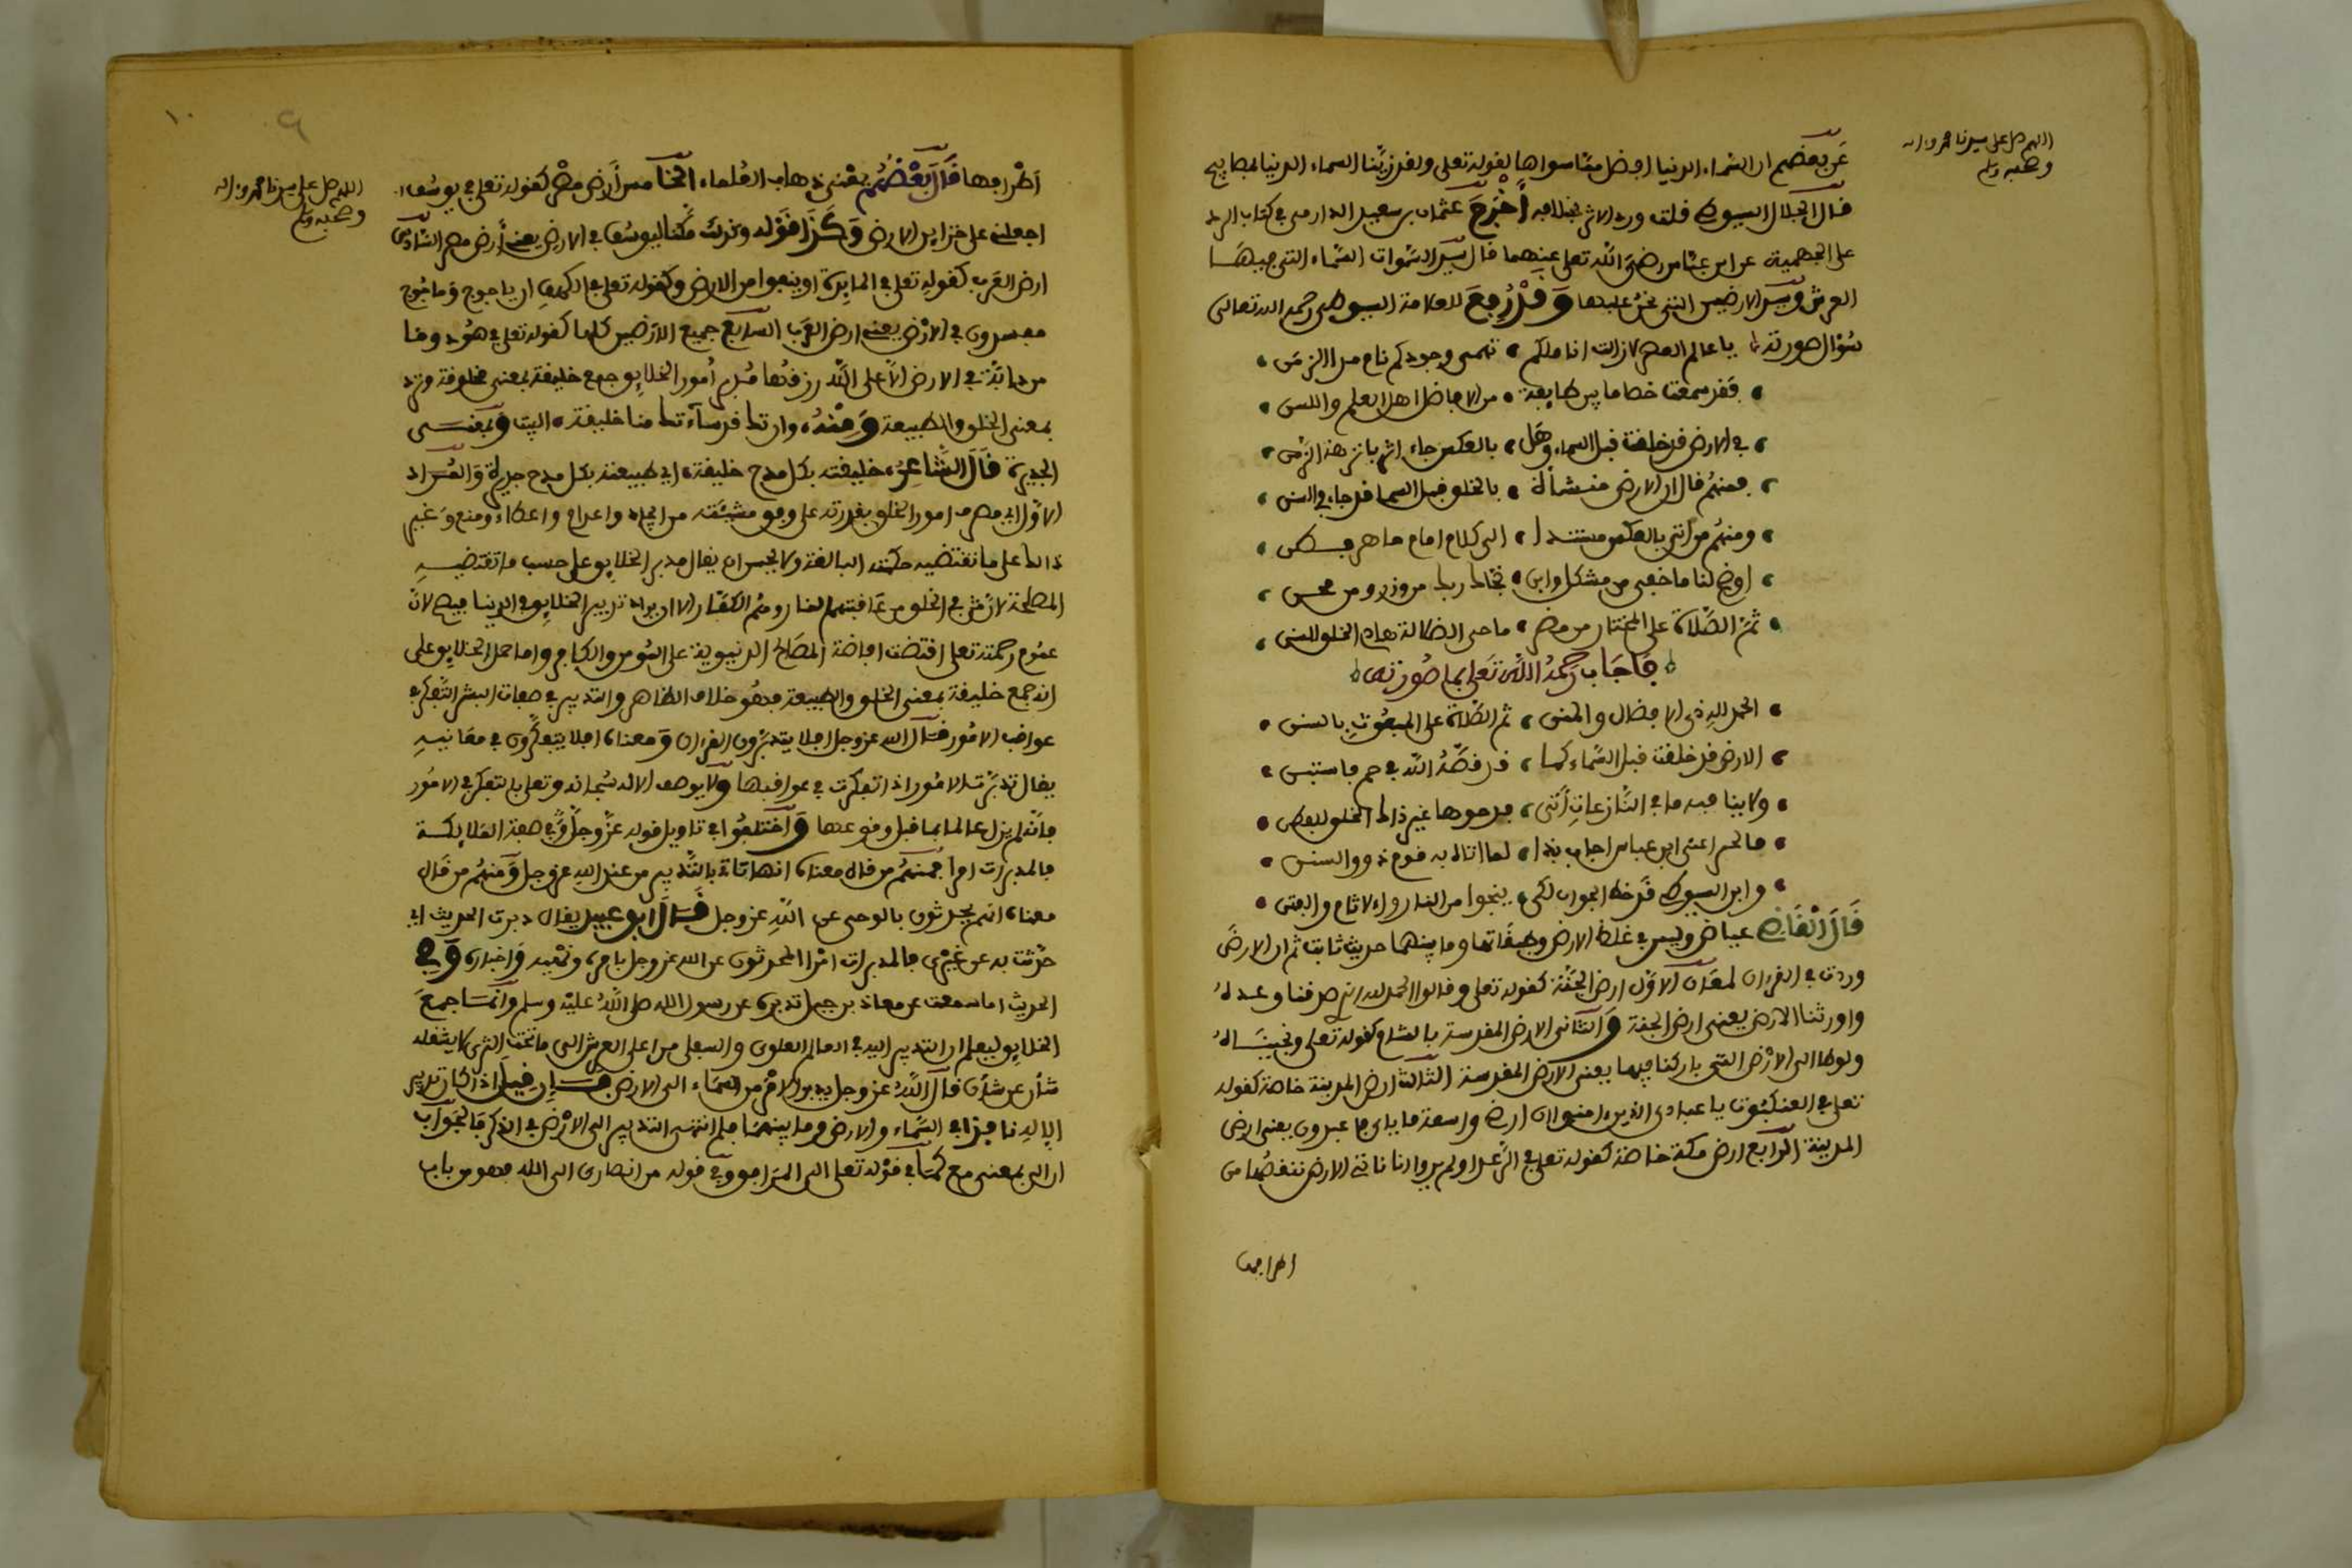 اللهم صل على سيدنا محمد وءاله
وصحبه وسلم
عن بعضهم ان السماء الدنيا افضل مما سواها لقوله تعلى ولقد زينا السماء الدنيا بمصابيح
قال الجلال السيوطي قلت ورد الاثر بخلافه أخرج عثمان بن سعيد الدارمي في كتاب الرد
على الجهمية عن ابن عباس رضي الله تعلى عنهما قال سيد السموات السماء التي فيها
العرش وسيد الارضين التي نحن عليها وقد رفع للعلامة السيوطي رحمه الله تعالى
سؤال صورته
يا عالم العصر لا زالت انا ملكم تهمى وجودكم نام مدا الزمن
فقد سمعت خصاما بين طايفة من الافاضل اهل العلم واللسن
في الارض قد خلقت قبل السماء وهل بالعكس جاء اثر يا نزهة الزمن
فمنهم قال ان الارض منشأة بالخلق قبل السما قد جاء في السنن
ومنهم من أتى بالعكس مستندا الى كلام امام ماهر فطن
اوضح لنا ما خفي من مشكل وابن نجاك ربك من وزر ومن محن
ثم الصلاة على المختار من مضر ماحي الضلالة هادي الخلق للسنن
فاجاب رحمه الله تعلى بما صورته
الحمد لله ذي الافضال والمنن ثم الصلاة على المبعوث بالسنن
الارض قد خلقت قبل السماء كما قد نصه الله في حم فاستبن
ولا ينافيه ما في النازعات أتى فدحوها غير ذاك الخلق للفطن
فالحبر اعني ابن عباس اجاب بذا لما اتاه به قوم ذوو السنن
وابن السيوطي قد خط الجواب لكي ينجوا من النار والاثام والفتن
قال القاضي عياض وليس في غلظ الارض وطبقاتها وما بينهما حديث ثابت ثم ان الارض
وردت في القرءان لمعان الاول ارض الجنة كقوله تعلى وقالوا الحمد لله الذي صدقنا وعده
واورثنا الارض يعني ارض الجنة والثاني الارض المقدسة بالشام كقوله تعلى ونجيناه
ولوطا الى الارض التي باركنا فيها يعني الارض المقدسة الثالث ارض المدينة خاصة كقوله
تعلى في العنكبوت يا عبادي الذين ءامنوا ان ارضي واسعة فاياي فاعبدون يعني ارض
المدينة الرابع ارض مكة خاصة كقوله تعلى في الرعد اولم يروا انا ناتي الارض ننقصها من
اطرافها
١٠
٩
اللهم صل على سيدنا محمد وءاله
وصحبه وسلم
اطرافها قال بعضهم يعني ذهاب العلماء الخامس أرض مصر كقوله تعلى في يوسف
اجعلني على خزاين الارض وكذا قوله وكذلك مكنا ليوسف في الارض يعني أرض مصر السادس
ارض العرب كقوله تعلى في المايدة اوينفوا من الارض وكقوله تعلى في الكهف ان ياجوج وماجوج
مفسدون في الارض يعني ارض العرب السابع جميع الارضين كلها كقوله تعلى في هود وما
من دابة في الارض الا على الله رزقها مدبر أمور الخلايق جمع خليفة بمعنى مخلوقة وترد
بمعنى الخلق والطبيعة ومنه وان تك قد ساءتك منا خليقة البيت وبمعنى
الجديرة قال الشاعر خليقته بكل مدح خليقة اي طبيعته بكل مدح جديرة والمراد
الاول اي مصرف امور الخلق بقدرته على وفق مشيئته من ايجاد واعدام واعطاء ومنع وغير
ذالك على ما تقتضيه حكمته البالغة ولا يحسن ان يقال مدبر الخلايق على حسب ما تقتضيه
المصلحة لان في الخلق من عاقبتهم النار وهم الكفار الا ان يراد تدبير الخلايق في الدنيا فيصح لان
عموم رحمته تعلى اقتضت افاضة المصالح الدنيوية على المومن والكافر واما حمل الخلايق على
انه جمع خليقة بمعنى الخلق والطبيعة فهو خلاف الظاهر والتدبير في صفات البشر التفكر في
عواقب الامور قال الله عز وجل افلا يتدبرون القرءان ومعناه افلا يتفكرون في معانيه
يقال تدبرت الامور اذا تفكرت في عواقبها ولا يوصف الاله سبحانه وتعلى بالتفكر في الامور
فانه لم يزل عالما بما قبل وقوعها واختلفوا في تاويل قوله عز وجل في صفة الملايكة
فالمدبرات امرا فمنهم من قال معناه انها تاتي بالتدبير من عند الله عز وجل ومنهم من قال
معناه انهم يحدثون بالوحي عن الله عز وجل قال ابو عبيد يقال دبرت الحديث اي
حدثت به عن غيري فالمدبرات امرا المحدثون عن الله عز وجل بامره ونهيه واخباره وفي
الحديث اما سمعت عن معاذ بن جبل تدبره عن رسول الله صلى الله عليه وسلم وانما جمع
الخلايق ليعلم ان التدبير اليه في العالم العلوي والسفلي من اعلى العرش الى ما تحت الثرى لا يشغله
شأن عن شأن قال الله عز وجل يدبر الامر من السماء الى الارض فان قيل اذا كان تدبير
الاله نافذا في السماء والارض وما بينهما فلم انتهى التدبير الى الارض في الذكر فالجواب
ان الى بمعنى مع كما في قوله تعلى الى المرافق وفي قوله من انصاري الى الله فهو من باب